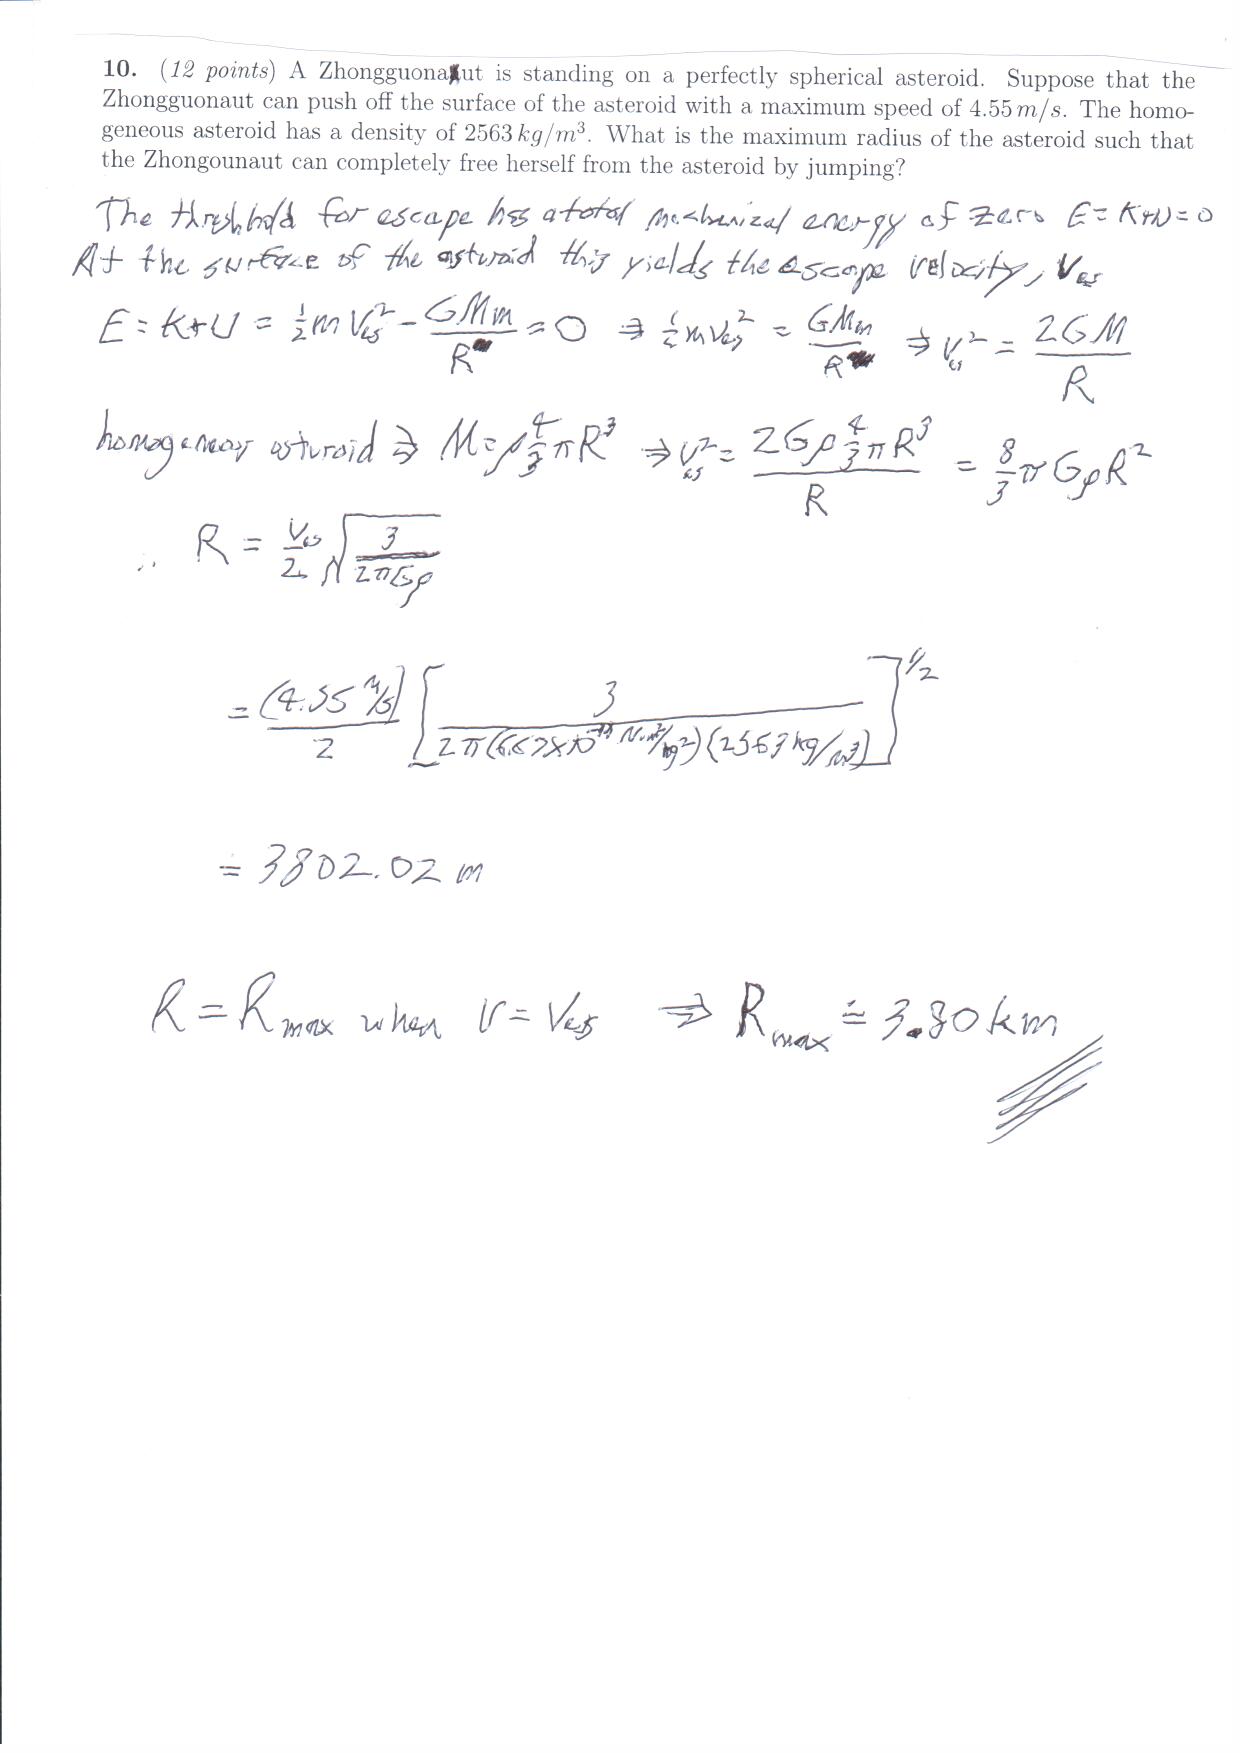 10. (12 points) A Zhongguonaut is standing on a perfectly spherical asteroid. Suppose that the
Zhongguonaut can push off the surface of the asteroid with a maximum speed of 4.55 m/s. The homo-
geneous asteroid has a density of 2563 kg/m³. What is the maximum radius of the asteroid such that
the Zhongounaut can completely free herself from the asteroid by jumping?
The threshhold for escape has a total mechanical energy of zero E = K+U = 0
At the surface of the asturoid this yields the escape velocity, V_es
E = K+U = ½ m V_es² - GMm/R = 0 ⇒ ½ m V_es² = GMm/R ⇒ V_es² = 2GM/R
homogeneous asturoid ⇒ M = ρ 4/3 π R³ ⇒ V_es² = 2Gρ 4/3 π R³ / R = 8/3 π G ρ R²
∴ R = V_es/2 √(3/(2πGρ))
= (4.55 m/s)/2 [3/(2π(6.67×10⁻¹¹ N·m²/kg²)(2563 kg/m³))]^1/2
= 3802.02 m
R = R_max when v = V_es ⇒ R_max ≐ 3.80 km